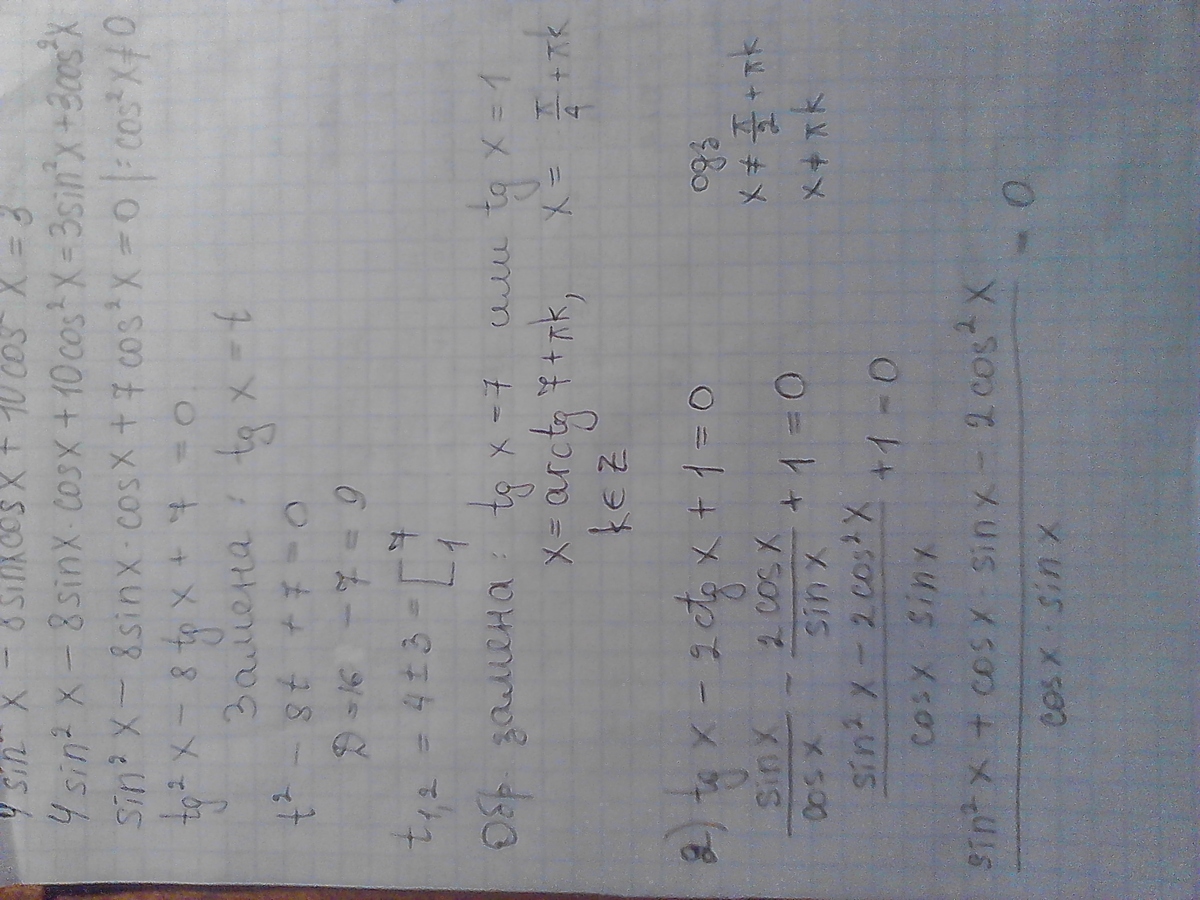 4 sin² x - 8 sinx cosx + 10 cos² x = 3
4 sin² x - 8 sinx · cosx + 10cos² x = 3 sin² x + 3cos² x
sin² x - 8 sinx · cosx + 7 cos² x = 0 |: cos² x ≠ 0
tg² x - 8 tg x + 7 = 0
Замена: tg x = t
t² - 8t + 7 = 0
D = 16 - 7 = 9
t₁,₂ = 4 ± 3 = [ 7 1
Обр. замена: tg x = 7 или tg x = 1
x = arctg 7 + πk, x = π/4 + πk
k ∈ Z
2) tg x - 2 ctg x + 1 = 0 одз
sin x / cos x - 2 cos x / sin x + 1 = 0 x ≠ π/2 + πk
x ≠ πk
sin² x - 2 cos² x / cos x · sin x + 1 = 0
sin² x + cos x · sin x - 2 cos² x / cos x · sin x = 0